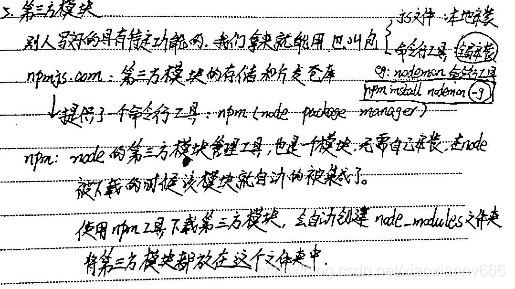 3. 第三方模块
别人写好的具有特定功能的,我们拿来就能用 也叫包
js文件:本地安装
命令行工具:全局安装
eg: nodemon 命令行工具
npm install nodemon -g
npmjs.com:第三方模块的存储和分发仓库
↓提供了一个命令行工具:npm (node package manager)
npm: node的第三方模块管理工具,也是一个模块,无需自己安装,在node
被下载的时候该模块就自动的被集成了。
使用npm工具下载第三方模块,会自动创建 node_modules文件夹
将第三方模块都放在这个文件夹中.